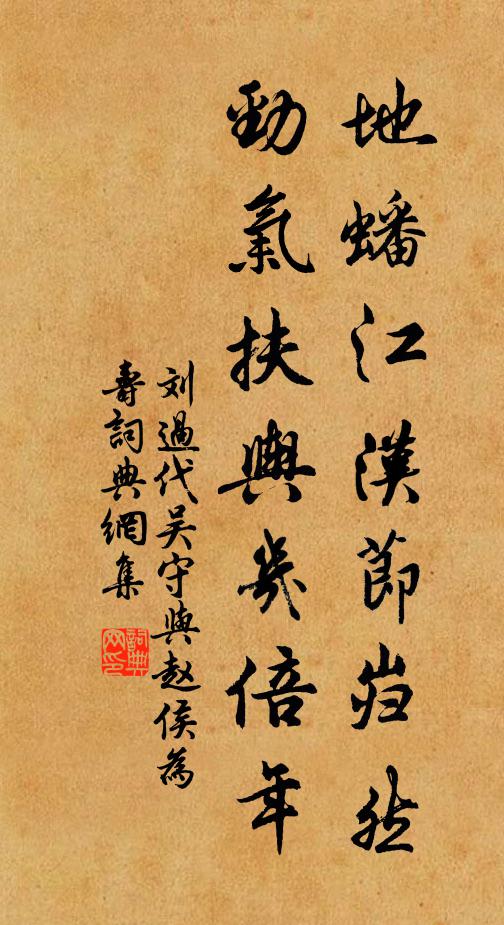 地蟠江漢節岿然
勁氣扶輿幾倍年
刘過代吴守與赵侯為
壽詞典網集
詞典网印